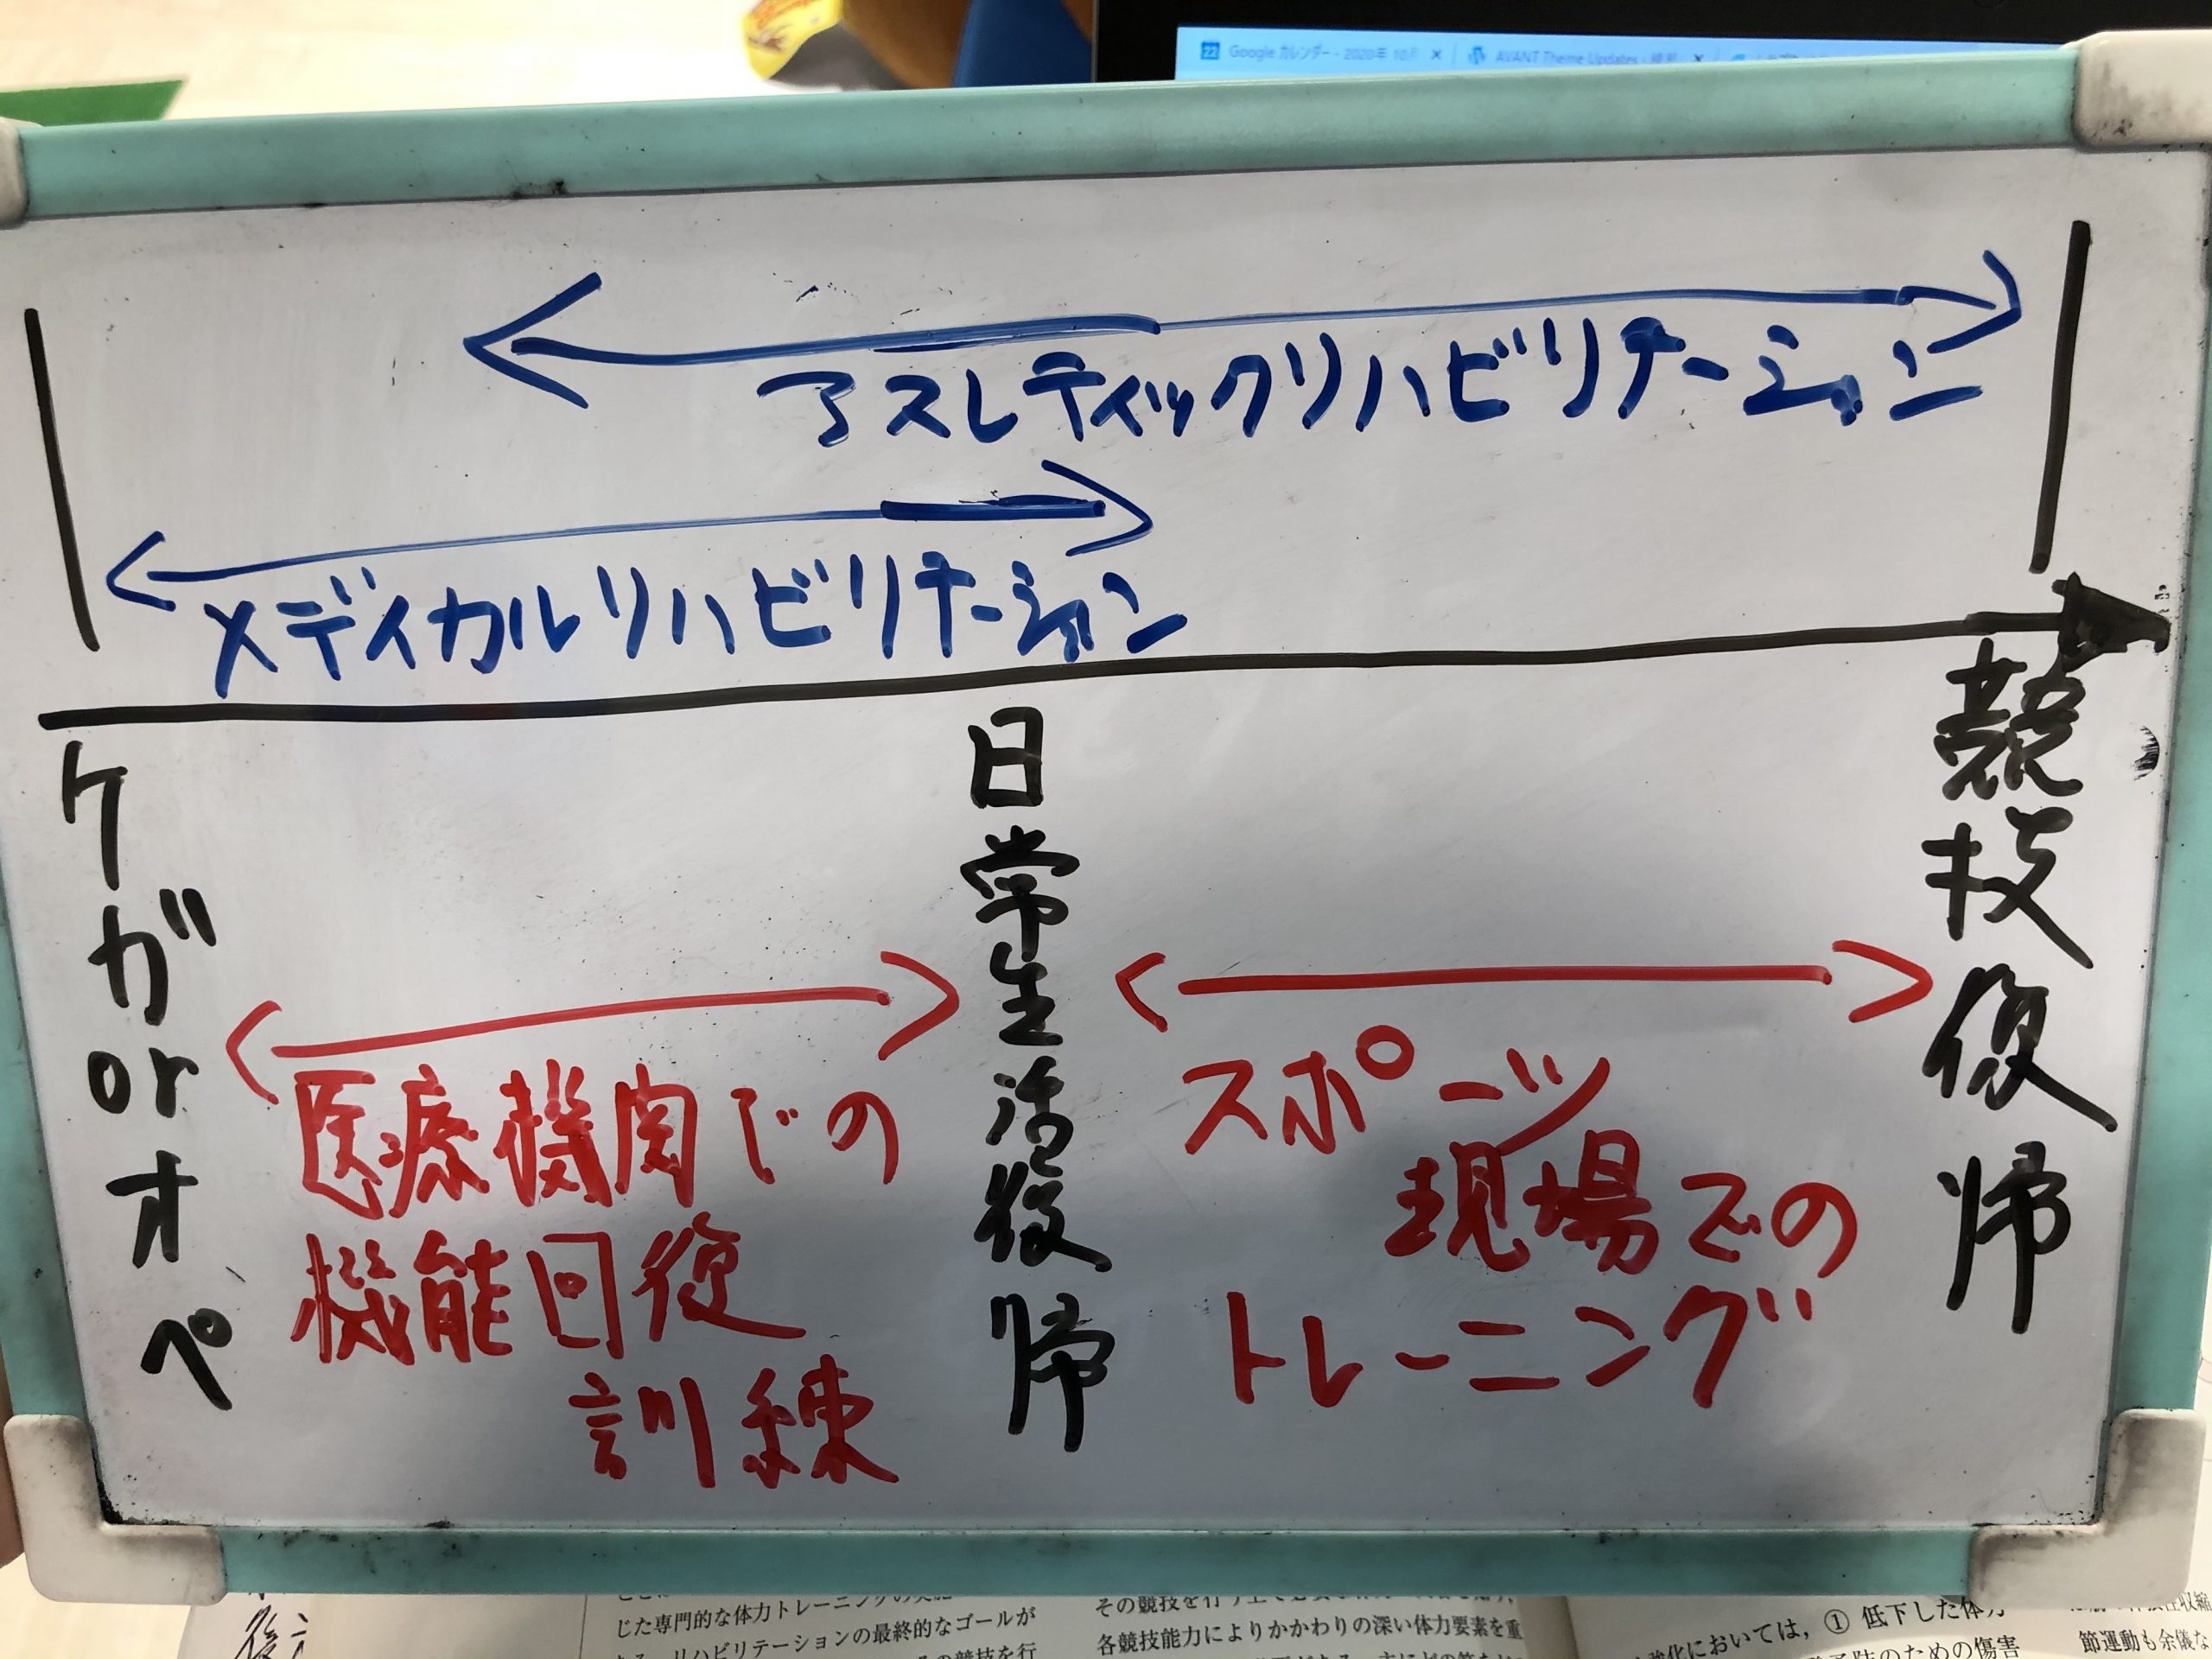 Google カレンダー - 2020年 10月
AVANT Theme Updates - 
アスレティックリハビリテーション
メディカルリハビリテーション
ケガorオペ
日常生活復帰
競技復帰
医療機関での
機能回復
訓練
スポーツ
現場での
トレーニング
じた専門的な体力トレーニングの
リハビリテーションの最終的なゴールが
の競技を行
その競技を行う上で
各競技能力によりかかわりの深い体力要素を重
強化においては，① 低下した体力
のための傷害
収縮
節運動も余儀な
後